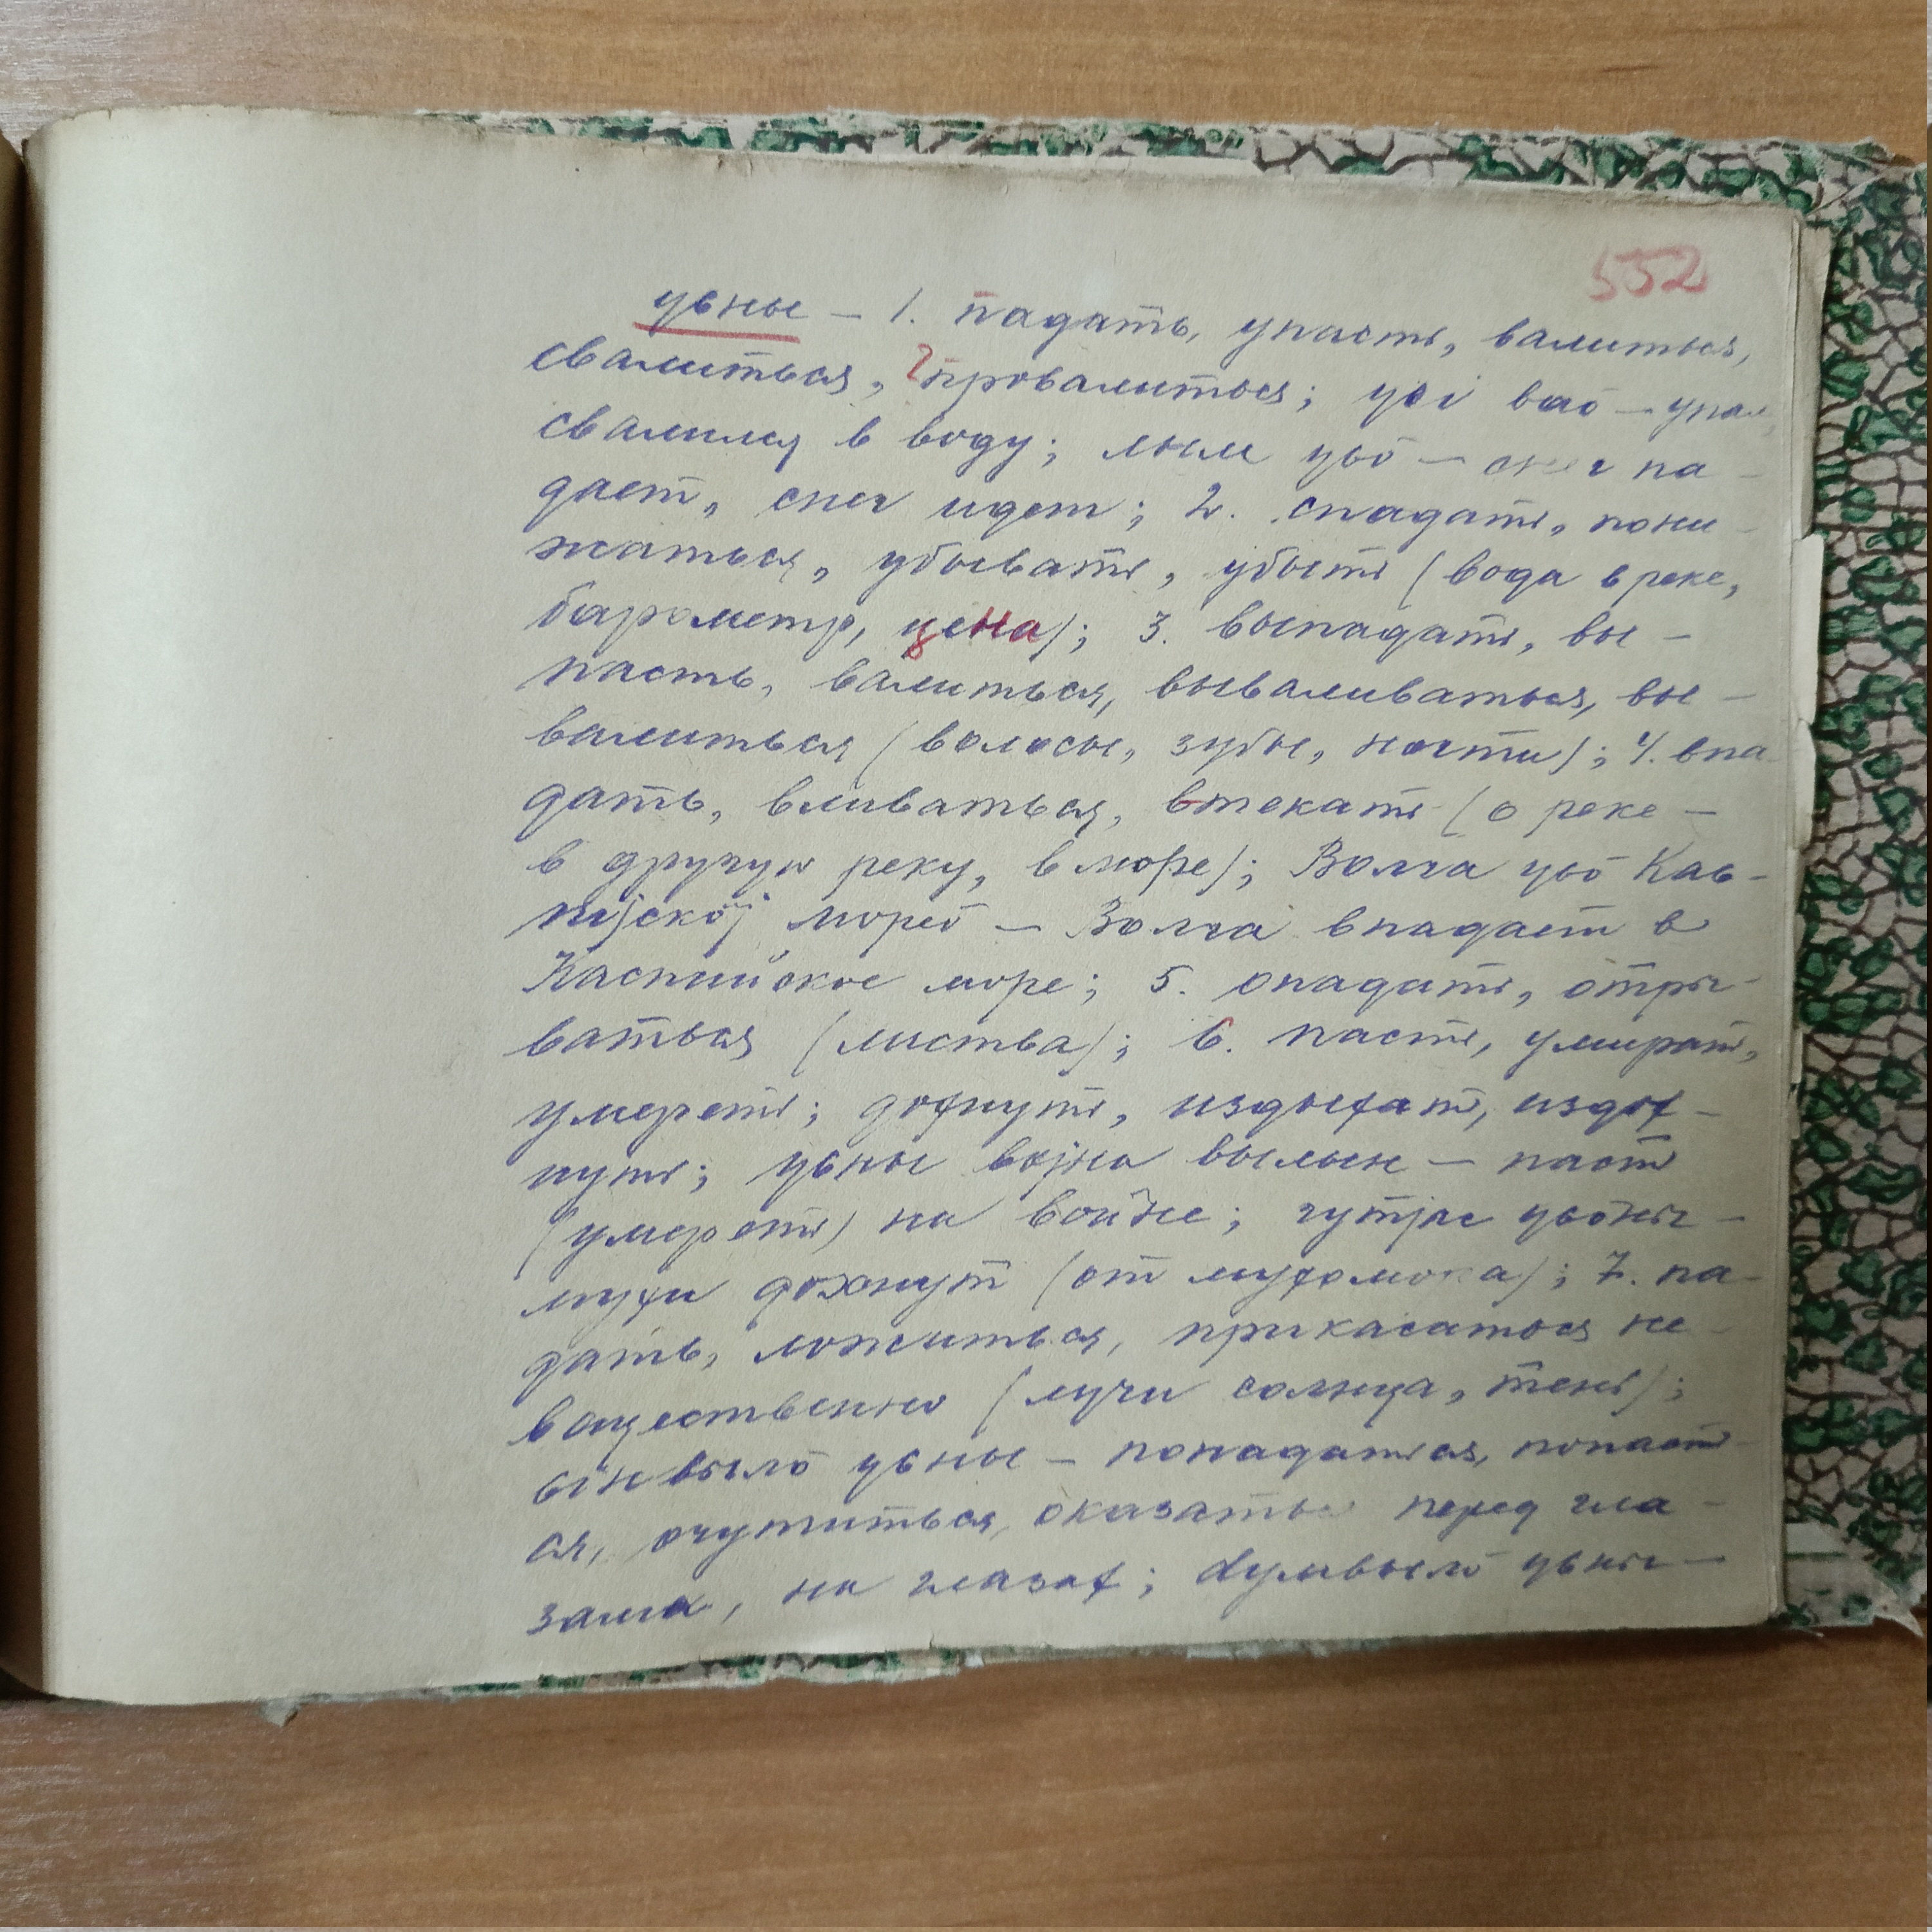 552
увны — 1. падать, упасть, валиться,
свалиться, ? провалиться; усі ваӧ — упал,
свалился в воду; лым увӧ — снег па-
дает, снег идет; 2. спадать, пони-
жаться, убывать, убыть (вода в реке,
барометр, цена); 3. выпадать, вы-
пасть, валиться, вываливаться, вы-
валиться (волосы, зубы, ногти); 4. впа-
дать, вливаться, втекать (о реке —
в другую реку, в море); Волга увӧ Кас-
пијскӧј мореӧ — Волга впадает в
Каспийское море; 5. опадать, отры-
ваться (листва); 6. пасть, умирать,
умереть; дохнуть, издыхать, издох-
нуть; увны војна вылын — пасть
(умереть) на войне; гутјас увӧны —
мухи дохнут (от мухомора); 7. па-
дать, ложиться, прикасаться не-
вещественно (лучи солнца, тень);
син вылӧ увны — попадаться, попасть-
ся, очутиться, оказаться перед гла-
зами, на глазах; увны —